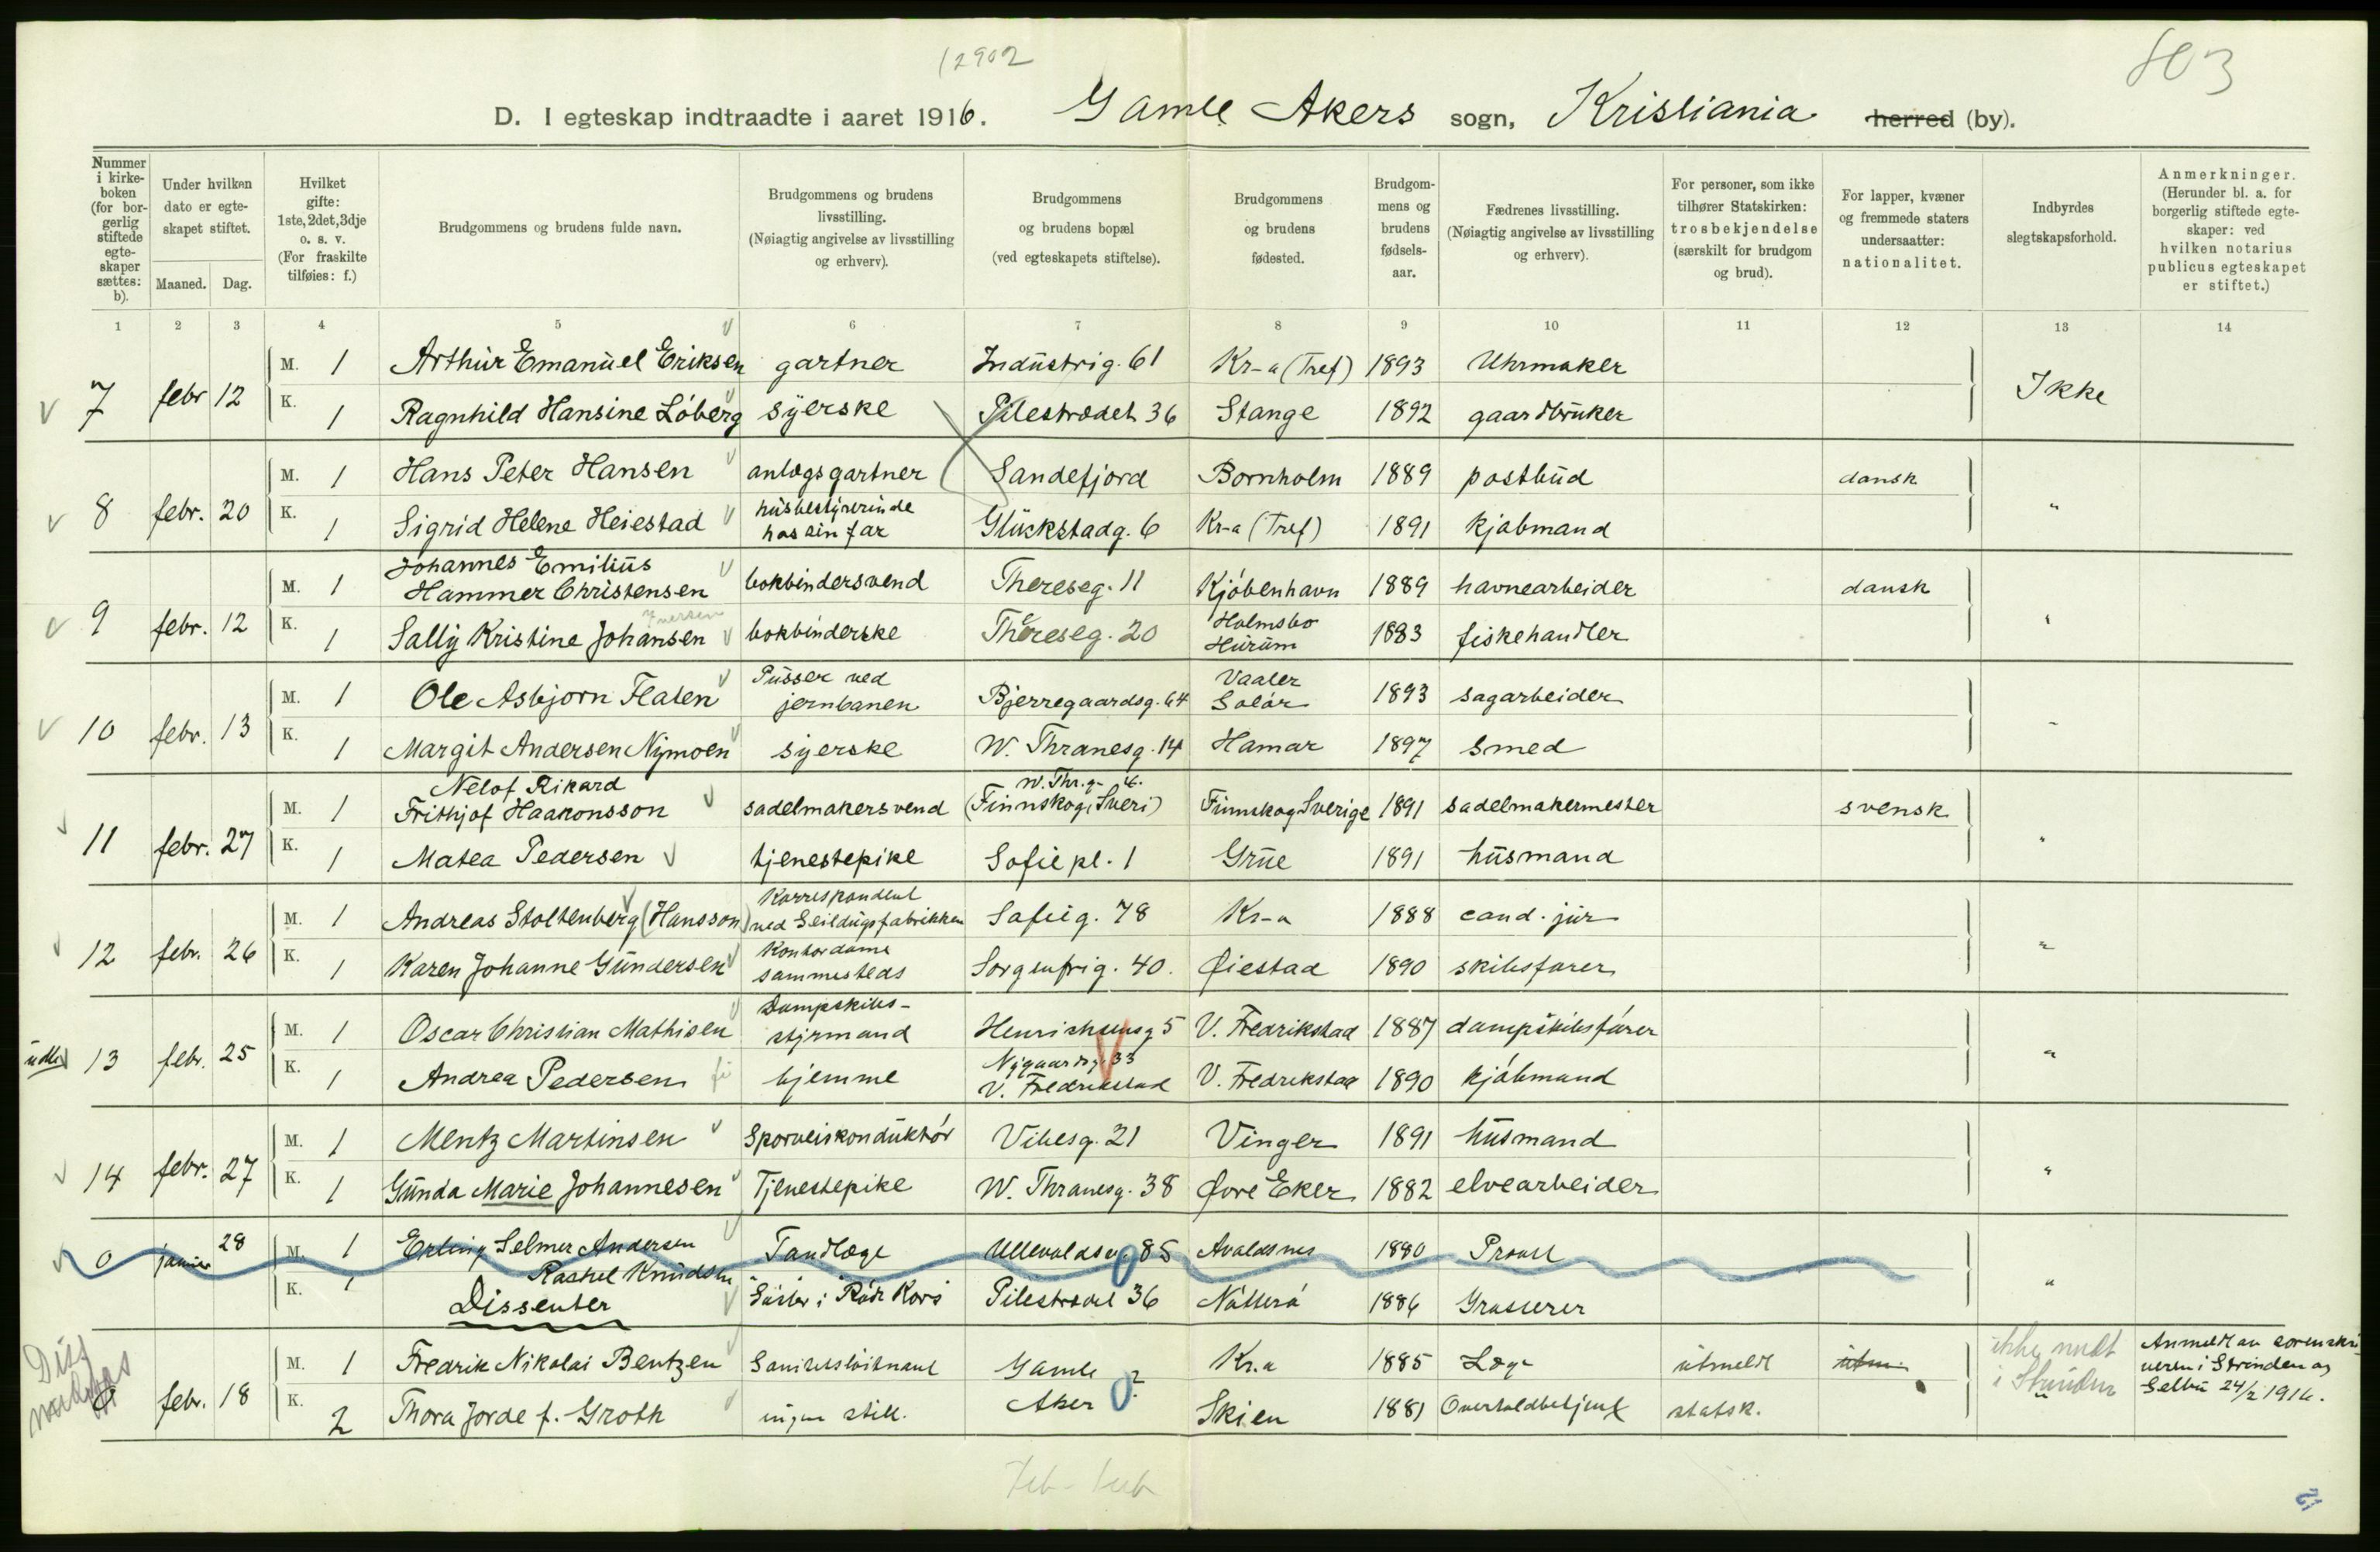 12902
803
D. I egteskap indtraadte i aaret 1916. Gamle Akers sogn, Kristiania herred (by).
Nummer i kirkeboken (for borgerlig stiftede egteskaper sættes: b).
Under hvilken dato er egteskapet stiftet.
Maaned. Dag.
Hvilket gifte: 1ste, 2det, 3dje o. s. v. (For fraskilte tilføies: f.)
Brudgommens og brudens fulde navn.
Brudgommens og brudens livsstilling. (Nøiagtig angivelse av livsstilling og erhverv).
Brudgommens og brudens bopæl (ved egteskapets stiftelse).
Brudgommens og brudens fødested.
Brudgommens og brudens fødselsaar.
Fædrenes livsstilling. (Nøiagtig angivelse av livsstilling og erhverv).
For personer, som ikke tilhører Statskirken: trosbekjendelse (særskilt for brudgom og brud).
For lapper, kvæner og fremmede staters undersaatter: nationalitet.
Indbyrdes slegtskapsforhold.
Anmerkninger. (Herunder bl. a. for borgerlig stiftede egteskaper: ved hvilken notarius publicus egteskapet er stiftet.)
1 2 3 4 5 6 7 8 9 10 11 12 13 14
7 febr 12 M. 1 Arthur Emanuel Eriksen gartner Industrig. 61 Kr-a (Tref) 1893 Uhrmaker Ikke
K. 1 Ragnhild Hansine Løberg syerske Pilestrædet 36 Stange 1892 gaardbruker
8 febr. 20 M. 1 Hans Peter Hansen anlægsgartner Sandefjord Bornholm 1889 postbud dansk "
K. 1 Sigrid Helene Heiestad husbestyrerinde hos sin far Glückstadg. 6 Kr-a (Tref) 1891 kjøbmand
9 febr. 12 M. 1 Johannes Emilius Hammer Christensen bokbindersvend Thereseg. 11 Kjøbenhavn 1889 havnearbeider dansk "
K. 1 Sally Kristine Johansen bokbinderske Thereseg. 20 Holmsbo Hurum 1883 fiskehandler
10 febr. 13 M. 1 Ole Asbjørn Flaten Pusser ved jernbanen Bjerregaardsg. 64 Vaaler Solør 1893 sagarbeider "
K. 1 Margit Andersen Nymoen syerske W. Thranesg. 14 Hamar 1897 smed
11 febr. 27 M. 1 Nelof Rikard Frithjof Haakonsson sadelmakersvend W. Thr.g. (Finnskog, Sveri) Finnskog Sverige 1891 sadelmakermester svensk "
K. 1 Matea Pedersen tjenestepike Sofie pl. 1 Grue 1891 husmand
12 febr. 26 M. 1 Andreas Stoltenberg (Hansson) Korrespondent ved Seildugsfabrikken Sofieg. 78 Kr-a 1888 cand. jur "
K. 1 Karen Johanne Gundersen Kontordame sammesteds Sorgenfrig. 40. Øiestad 1890 skibsfører
13 febr. 25 M. 1 Oscar Christian Mathisen Dampskibs- styrmand Henrichsensg 5 V. Fredrikstad 1887 dampskibsfører "
K. 1 Andrea Pedersen hjemme Nygaardsg. 33 V. Fredrikstad V. Fredrikstad 1890 kjøbmand
14 febr. 27 M. 1 Mentz Martinsen Sporveiskonduktør Vibesg. 21 Vinger 1891 husmand "
K. 1 Gunda Marie Johannesen Tjenestepike W. Thranesg. 38 Øvre Eker 1882 elvearbeider
0 januar 28 M. 1 Erling Selmer Andersen Tandlæge Ullevoldsv. 85 Avaldsnes 1880 Provst "
K. 1 Rachel Knudsen Søster i Røde Kors Pilestrædet 36 Nøtterø 1886 Grosserer
Dissenter
Diss
febr. 18 M. 1 Fredrik Nikolai Bentzen Sanitetsløitnant Gamle Kr.a 1885 Læge utmeldt utm. ikke Anmeldt av sorenskriveren i Strinden og Selbu 24/2 1916.
K. 2 Thora Jorde f. Groth ingen still. Aker ? Skien 1881 Overtoldbetjent statsk.